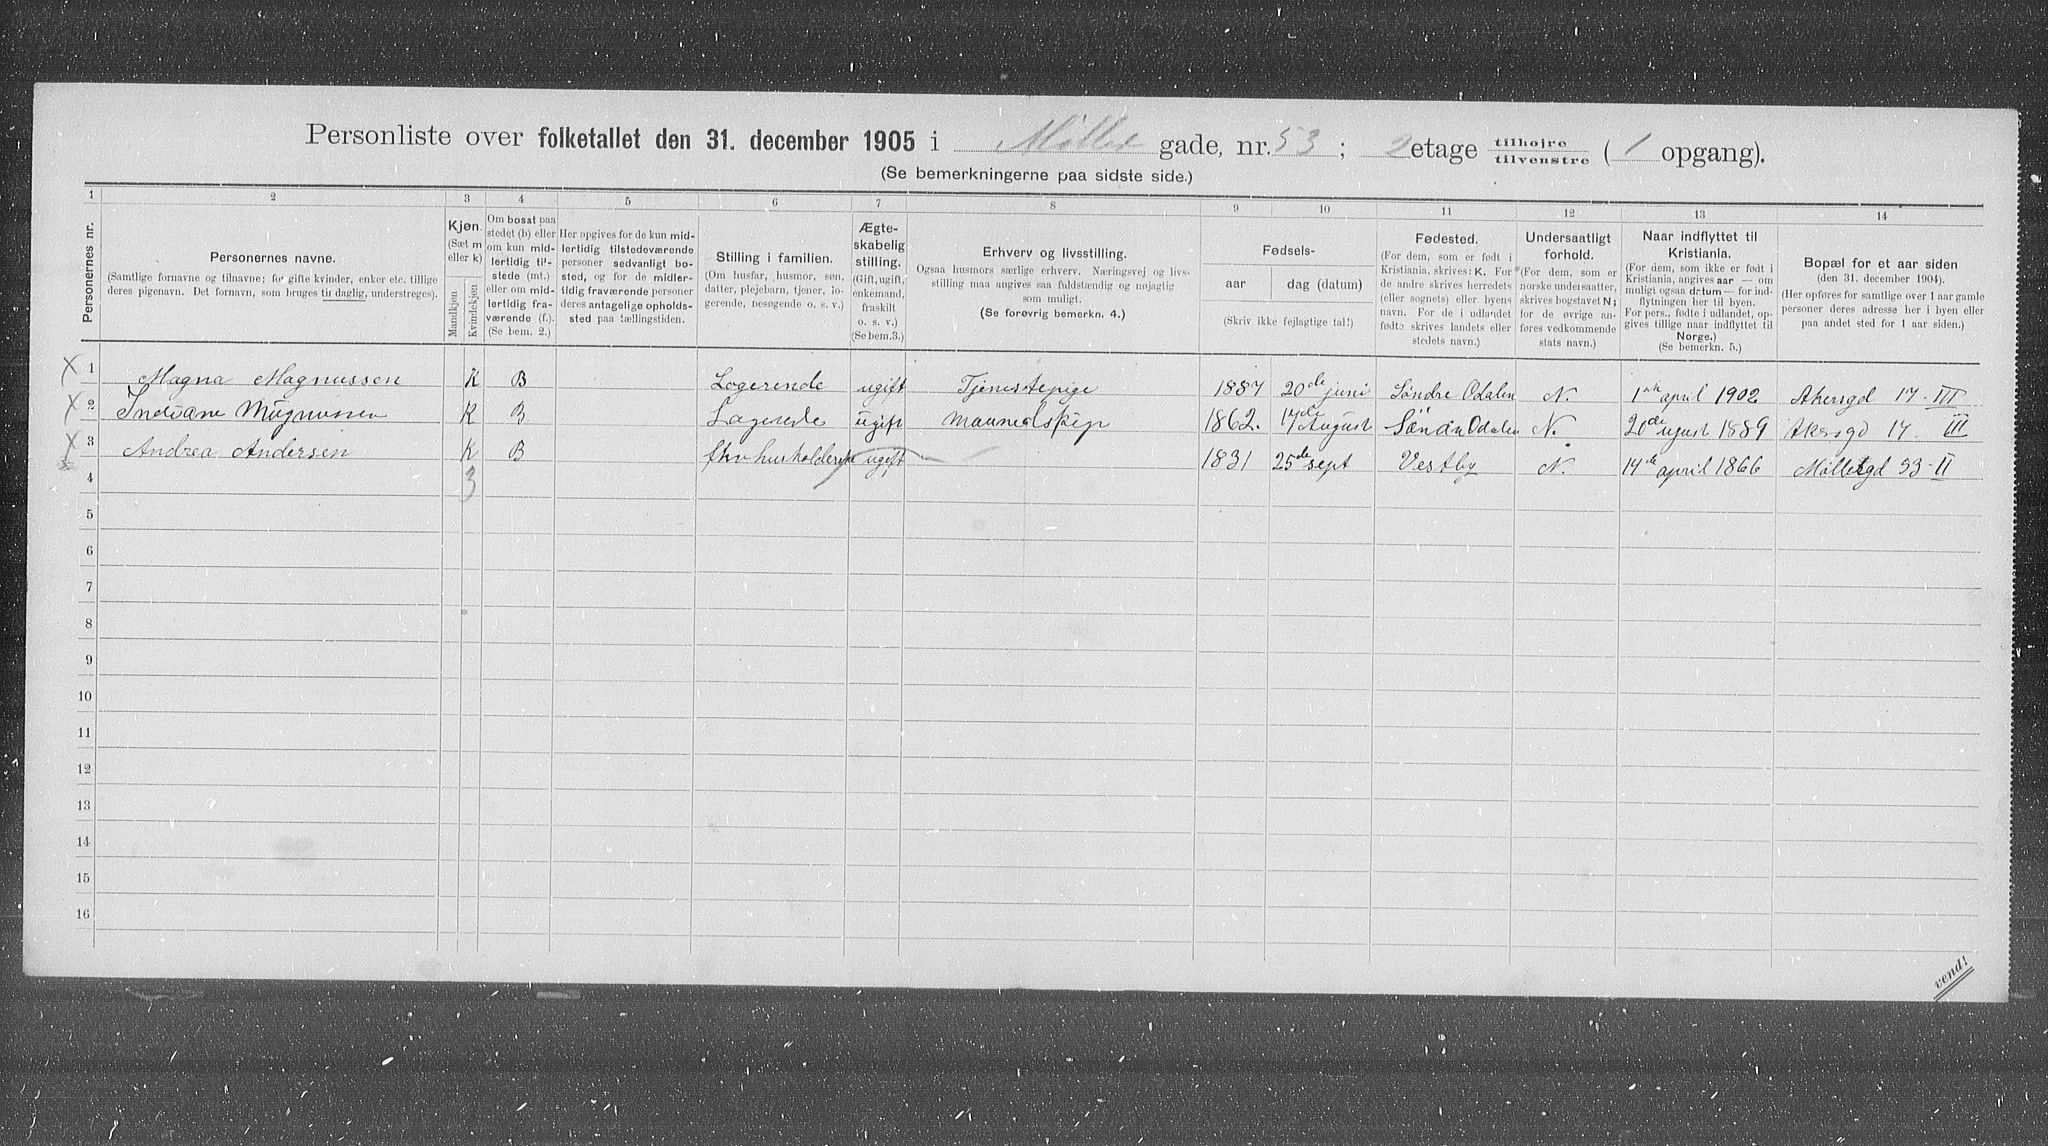 Personliste over folketallet den 31. december 1905 i Møller gade, nr. 53 ; 2 etage tilhøjre tilvenstre ( 1 opgang).
(Se bemerkningerne paa sidste side.)
1 2 3 4 5 6 7 8 9 10 11 12 13 14
Personernes nr.
Personernes navne.
(Samtlige fornavne og tilnavne; for gifte kvinder, enker etc. tillige
deres pigenavn. Det fornavn, som bruges til daglig, understreges).
Kjøn.
(Sæt m
eller k)
Mandkjøn
Kvindekjøn
Om bosat paa
stedet (b) eller
om kun mid-
lertidig til-
stede (mt.)
eller om mid-
lertidig fra-
værende (f.).
(Se bem. 2.)
Her opgives for de kun mid-
lertidig tilstedeværende
personer sedvanligt bo-
sted, og for de midler-
tidig fraværende personer
deres antagelige opholds-
sted paa tællingstiden.
Stilling i familien.
(Om husfar, husmor, søn,
datter, plejebarn, tjener, lo-
gerende, besøgende o. s. v.)
Ægte-
skabelig
stilling.
(Gift, ugift,
enkemand,
fraskilt
o. s. v.)
(Se bem.3.)
Erhverv og livsstilling.
Ogsaa husmors særlige erhverv. Næringsvej og livs-
stilling maa angives saa fuldstændig og nøjagtig
som muligt.
(Se forøvrig bemerkn. 4.)
Fødsels-
aar
dag (datum)
(Skriv ikke fejlagtige tal!)
Fødested.
(For dem, som er født i
Kristiania, skrives: K. For
de andre skrives herredets
(eller sognets) eller byens
navn. For de i udlandet
fødte skrives landets eller
stedets navn.)
Undersaatligt
forhold.
(For dem, som er
norske undersaatter,
skrives bogstavet N;
for de øvrige an-
føres vedkommende
stats navn.)
Naar indflyttet til
Kristiania.
(For dem, som ikke er født i
Kristiania, angives aar — om
muligt ogsaa datum — for ind-
flytningen her til byen.
For pers., fødte i udlandet, op-
gives tillige naar indflyttet til
Norge.)
(Se bemerkn. 5.)
Bopæl for et aar siden
(den 31. december 1904).
(Her opføres for samtlige over 1 aar gamle
personer deres adresse her i byen eller
paa andet sted for 1 aar siden.)
X 1 Magna Magnussen K B Logerende ugift Tjenestepige 1887 20de juni Søndre Odalen N. 1ste april 1902 Akersgd 17 III
X 2 Magnussen K B ugift 1862. 17de August Odalen N. 20de 1889 Akersgd 17 III
X 3 Andrea Andersen K B ugift 1831 25de sept Vestby N. 14de april 1866 Møllergd 53 - II
4 3
5
6
7
8
9
10
11
12
13
14
15
16
vend!